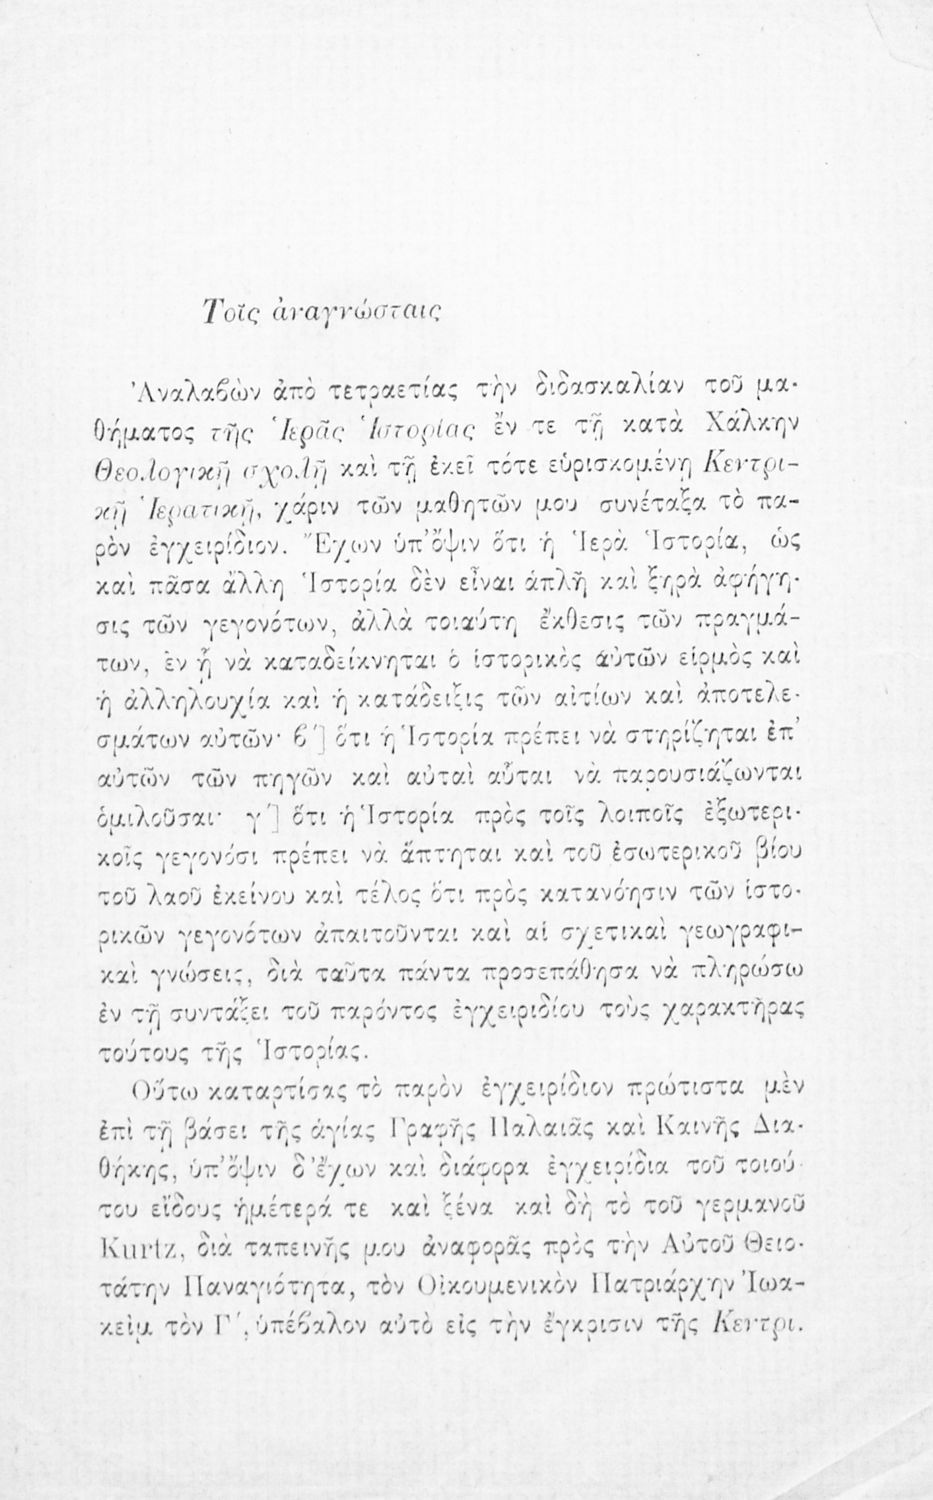 Τοῖς ἀναγνώσταις
Ἀναλαβὼν ἀπὸ τετραετίας τὴν διδασκαλίαν τοῦ μα-
θήματος τῆς Ἱερᾶς Ἱστορίας ἔν τε τῇ κατὰ Χάλκην
Θεολογικῇ σχολῇ καὶ τῇ ἐκεῖ τότε εὑρισκομένῃ Κεντρι-
κῇ Ἱερατικῇ, χάριν τῶν μαθητῶν μου συνέταξα τὸ πα-
ρὸν ἐγχειρίδιον. Ἔχων ὑπ' ὄψιν ὅτι ἡ Ἱερὰ Ἱστορία, ὡς
καὶ πᾶσα ἄλλη Ἱστορία δὲν εἶναι ἁπλῆ καὶ ξηρὰ ἀφήγη-
σις τῶν γεγονότων, ἀλλὰ τοιαύτη ἔκθεσις τῶν πραγμά-
των, ἐν ᾗ νὰ καταδείκνηται ὁ ἱστορικὸς αὐτῶν εἱρμὸς καὶ
ἡ ἀλληλουχία καὶ ἡ κατάδειξις τῶν αἰτίων καὶ ἀποτελε-
σμάτων αὐτῶν· β'] ὅτι ἡ Ἱστορία πρέπει νὰ στηρίζηται ἐπ'
αὐτῶν τῶν πηγῶν καὶ αὐταὶ αὗται νὰ παρουσιάζωνται
ὁμιλοῦσαι· γ'] ὅτι ἡ Ἱστορία πρὸς τοῖς λοιποῖς ἐξωτερι-
κοῖς γεγονόσι πρέπει νὰ ἅπτηται καὶ τοῦ ἐσωτερικοῦ βίου
τοῦ λαοῦ ἐκείνου καὶ τέλος ὅτι πρὸς κατανόησιν τῶν ἱστο-
ρικῶν γεγονότων ἀπαιτοῦνται καὶ αἱ σχετικαὶ γεωγραφι-
καὶ γνώσεις, διὰ ταῦτα πάντα προσεπάθησα νὰ πληρώσω
ἐν τῇ συντάξει τοῦ παρόντος ἐγχειριδίου τοὺς χαρακτῆρας
τούτους τῆς Ἱστορίας.
Οὕτω καταρτίσας τὸ παρὸν ἐγχειρίδιον πρώτιστα μὲν
ἐπὶ τῇ βάσει τῆς ἁγίας Γραφῆς Παλαιᾶς καὶ Καινῆς Δια-
θήκης, ὑπ' ὄψιν δ' ἔχων καὶ διάφορα ἐγχειρίδια τοῦ τοιού-
του εἴδους ἡμέτερά τε καὶ ξένα καὶ δὴ τὸ τοῦ γερμανοῦ
Kurtz, διὰ ταπεινῆς μου ἀναφορᾶς πρὸς τὴν Αὐτοῦ Θειο-
τάτην Παναγιότητα, τὸν Οἰκουμενικὸν Πατριάρχην Ἰωα-
κεὶμ τὸν Γ', ὑπέβαλον αὐτὸ εἰς τὴν ἔγκρισιν τῆς Κεντρι-